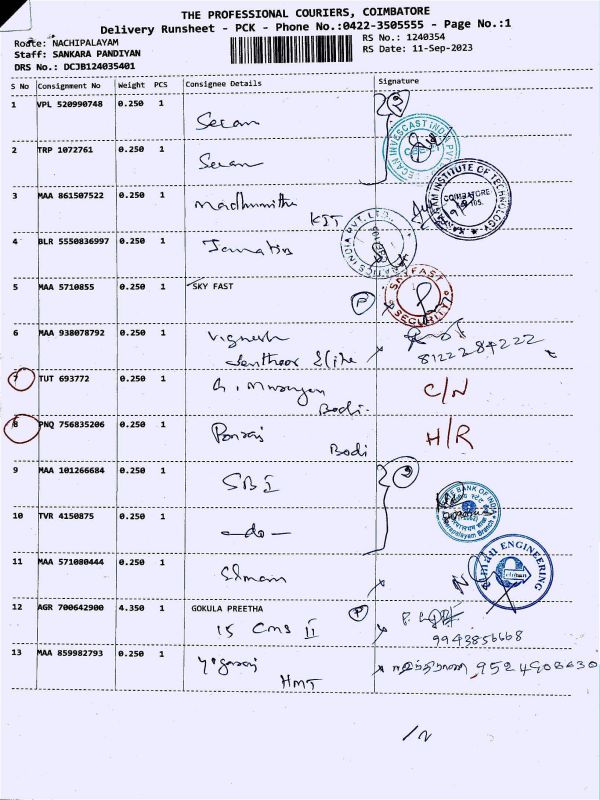 THE PROFESSIONAL COURIERS, COIMBATORE
Delivery Runsheet - PCK - Phone No.:0422-3505555 - Page No.:1
Route: NACHIPALAYAM
RS No.: 1240354
Staff: SANKARA PANDIYAN
RS Date: 11-Sep-2023
DRS No.: DCJB124035401
S No Consignment No Weight PCS Consignee Details Signature
1 VPL 520990748 0.250 1
Secan
2 TRP 1072761 0.250 1
Secan
3 MAA 861507522 0.250 1
Madhumitha
KIT
COIMBATORE
4 BLR 5550836997 0.250 1
5 MAA 5710855 0.250 1 SKY FAST
P
SKYFAST
SECURITY
6 MAA 938078792 0.250 1
Vignesh
8122284222
7 TUT 693772 0.250 1
C/N
Bodi
8 PNQ 756835206 0.250 1
H/R
Bodi
9 MAA 101266684 0.250 1
SBI
10 TVR 4150875 0.250 1
-do-
11 MAA 571080444 0.250 1
ENGINEERING
12 AGR 700642900 4.350 1 GOKULA PREETHA
P
15 CMS II
9943856668
13 MAA 859982793 0.250 1
HMT